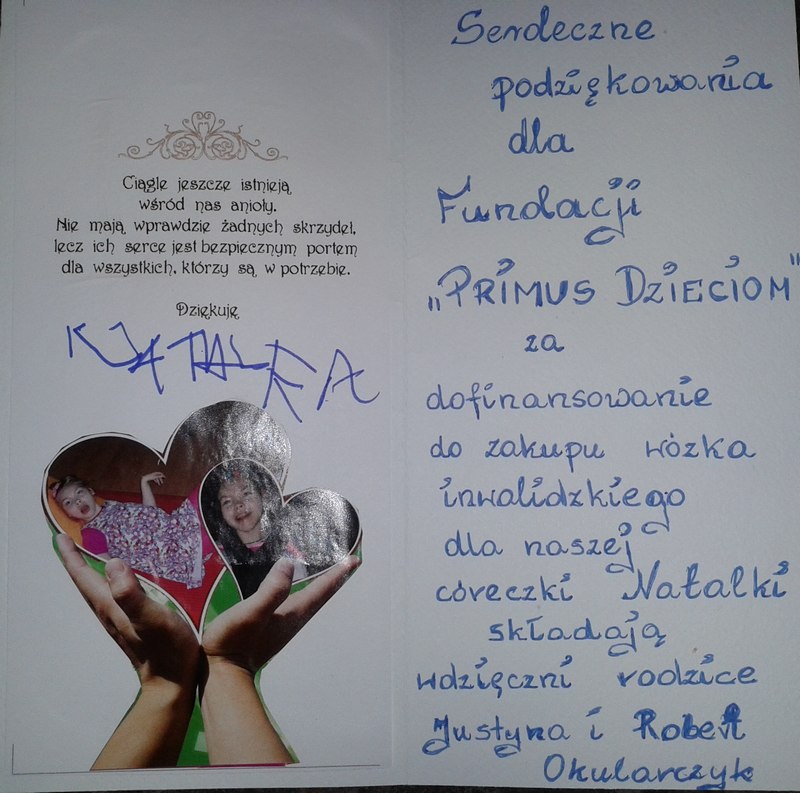 Ciągle jeszcze istnieją
wśród nas anioły.
Nie mają wprawdzie żadnych skrzydeł,
lecz ich serce jest bezpiecznym portem
dla wszystkich, którzy są w potrzebie.
Dziękuję
NATALKA
Serdeczne
podziękowania
dla
Fundacji
„PRIMUS DZIECIOM"
za
dofinansowanie
do zakupu wózka
inwalidzkiego
dla naszej
córeczki Natalki
składają
wdzięczni rodzice
Justyna i Robert
Okularczyk